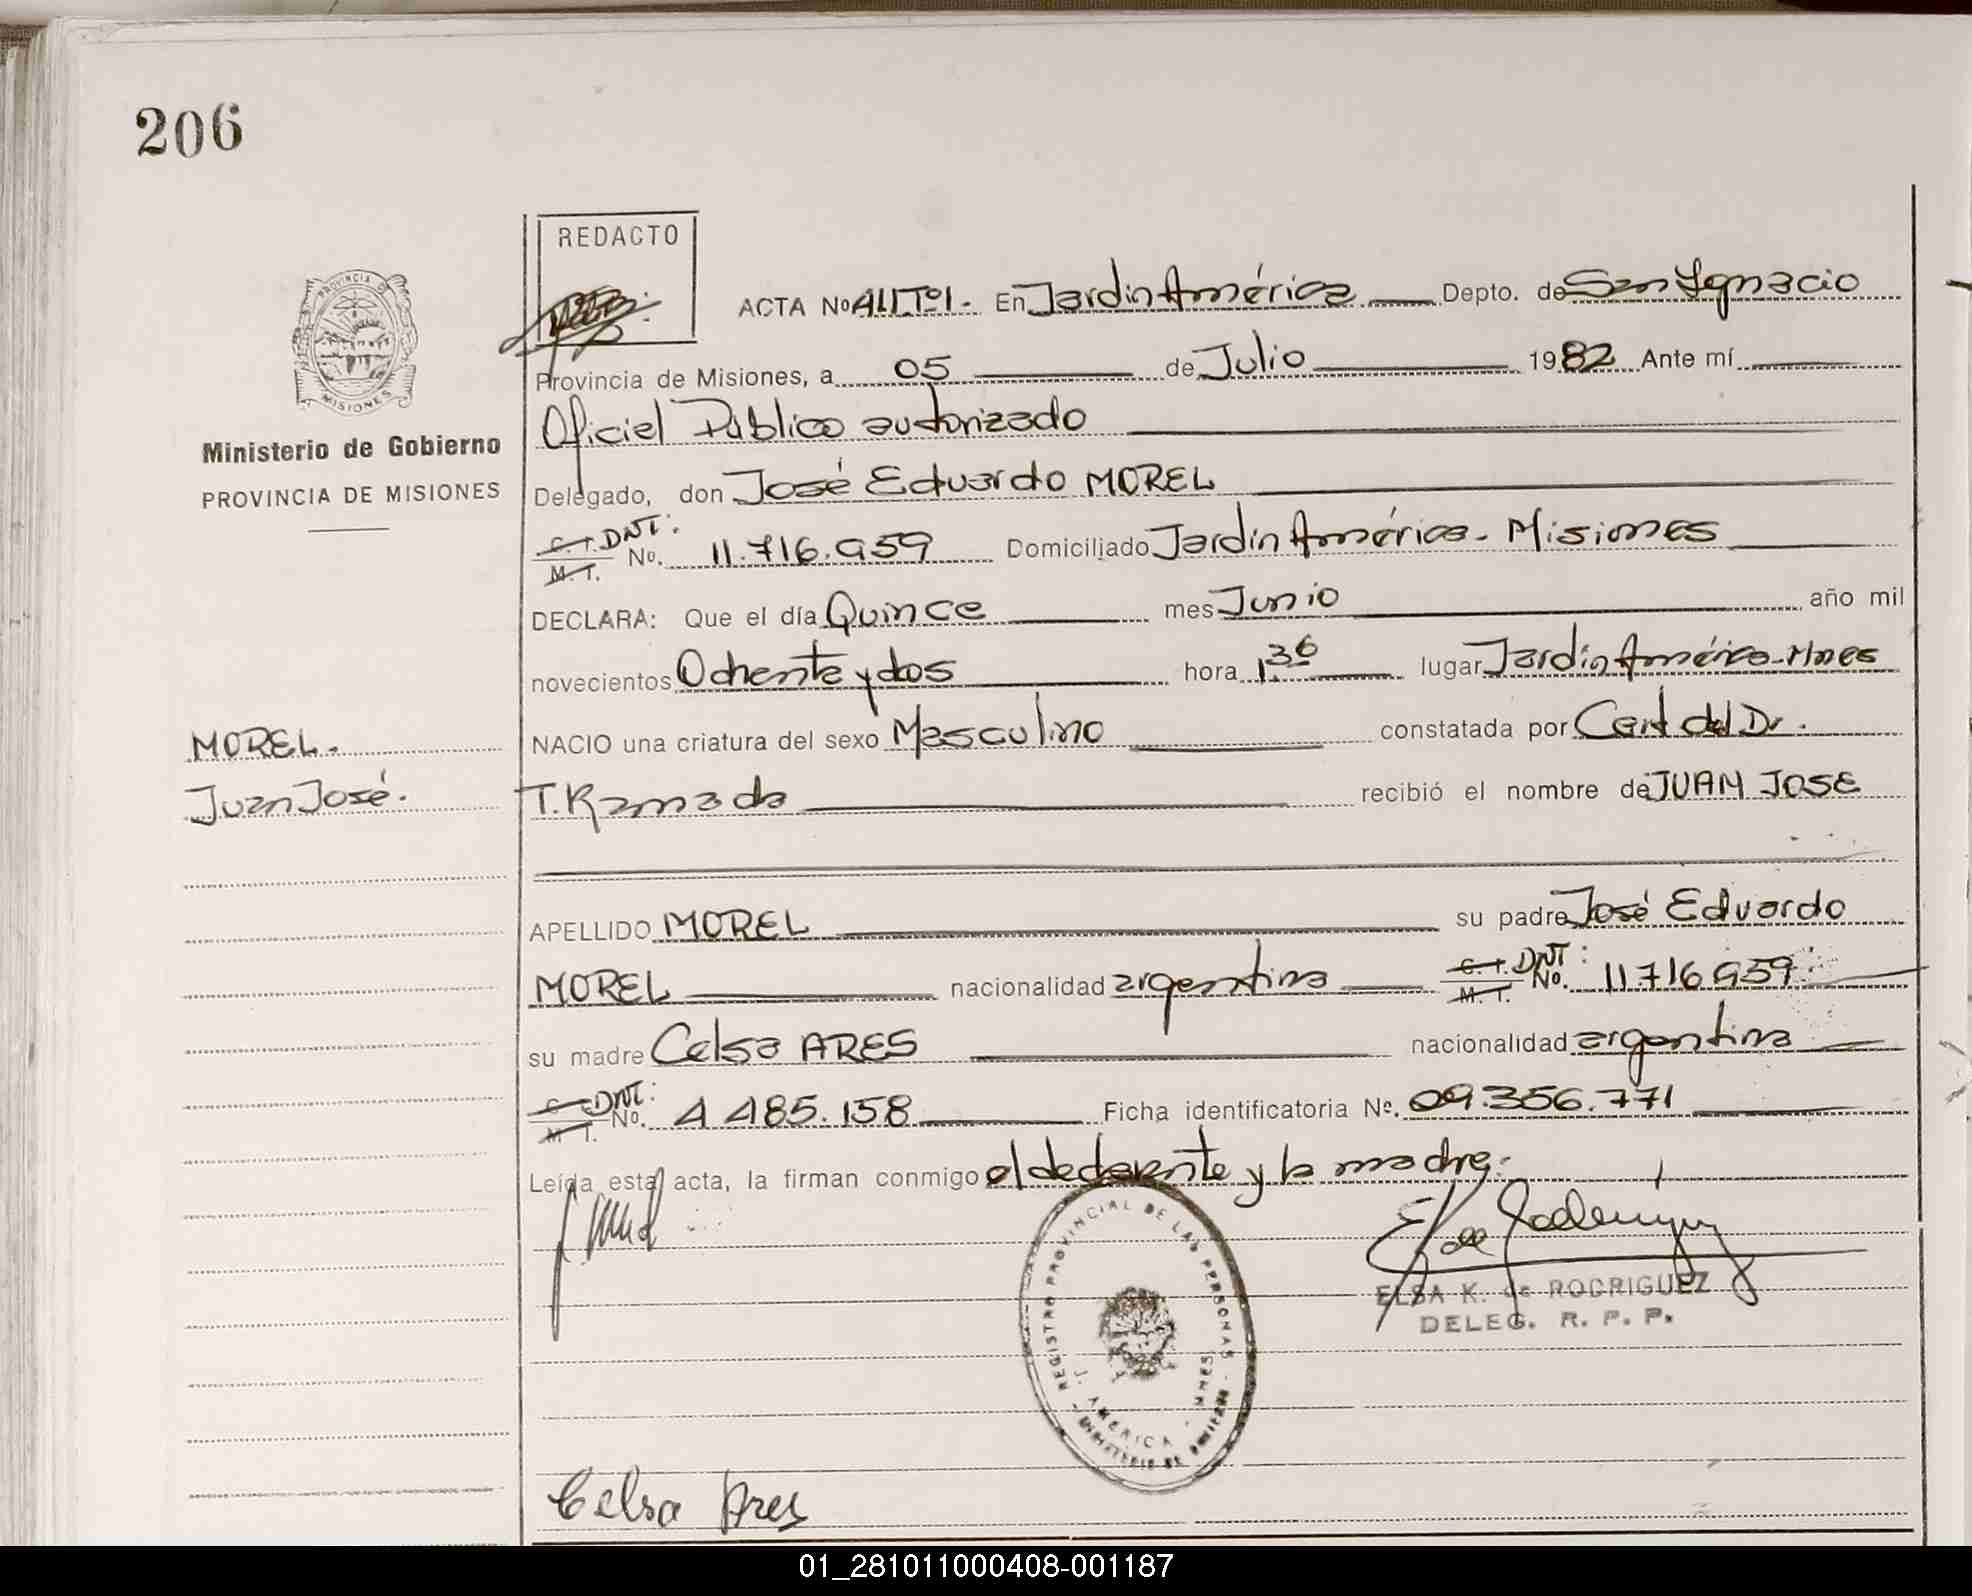 206
REDACTO
PROVINCIA DE MISIONES
Ministerio de Gobierno
PROVINCIA DE MISIONES
ACTA No 411.Tº1. En Jardin América Depto. de San Ignacio
Provincia de Misiones, a 05 de Julio 1982 Ante mí
Oficial Público autorizado
Delegado, don José Eduardo MOREL
C.I. DNI: M.I. No. 11.716.959 Domiciliado Jardin América - Misiones
DECLARA: Que el día Quince mes Junio año mil
novecientos Ochenta y dos hora 1.36 lugar Jardin América - Mnes
NACIO una criatura del sexo Masculino constatada por Cert del Dr.
T. Ramada recibió el nombre de JUAN JOSE
MOREL.
Juan José.
APELLIDO MOREL su padre José Eduardo
MOREL nacionalidad argentina C.I. DNI: M.I. No. 11.716.959
su madre Celsa ARES nacionalidad argentina
DNI: M.I. No. 4.485.158 Ficha identificatoria Nº. 09.356.771
Leída esta acta, la firman conmigo el declarante y la madre.
REGISTRO PROVINCIAL DE LAS PERSONAS
J. AMERICA - MNES
MINISTERIO DE GOBIERNO
ELSA K. de RODRIGUEZ
DELEG. R. P. P.
Celsa Ares
01_281011000408-001187